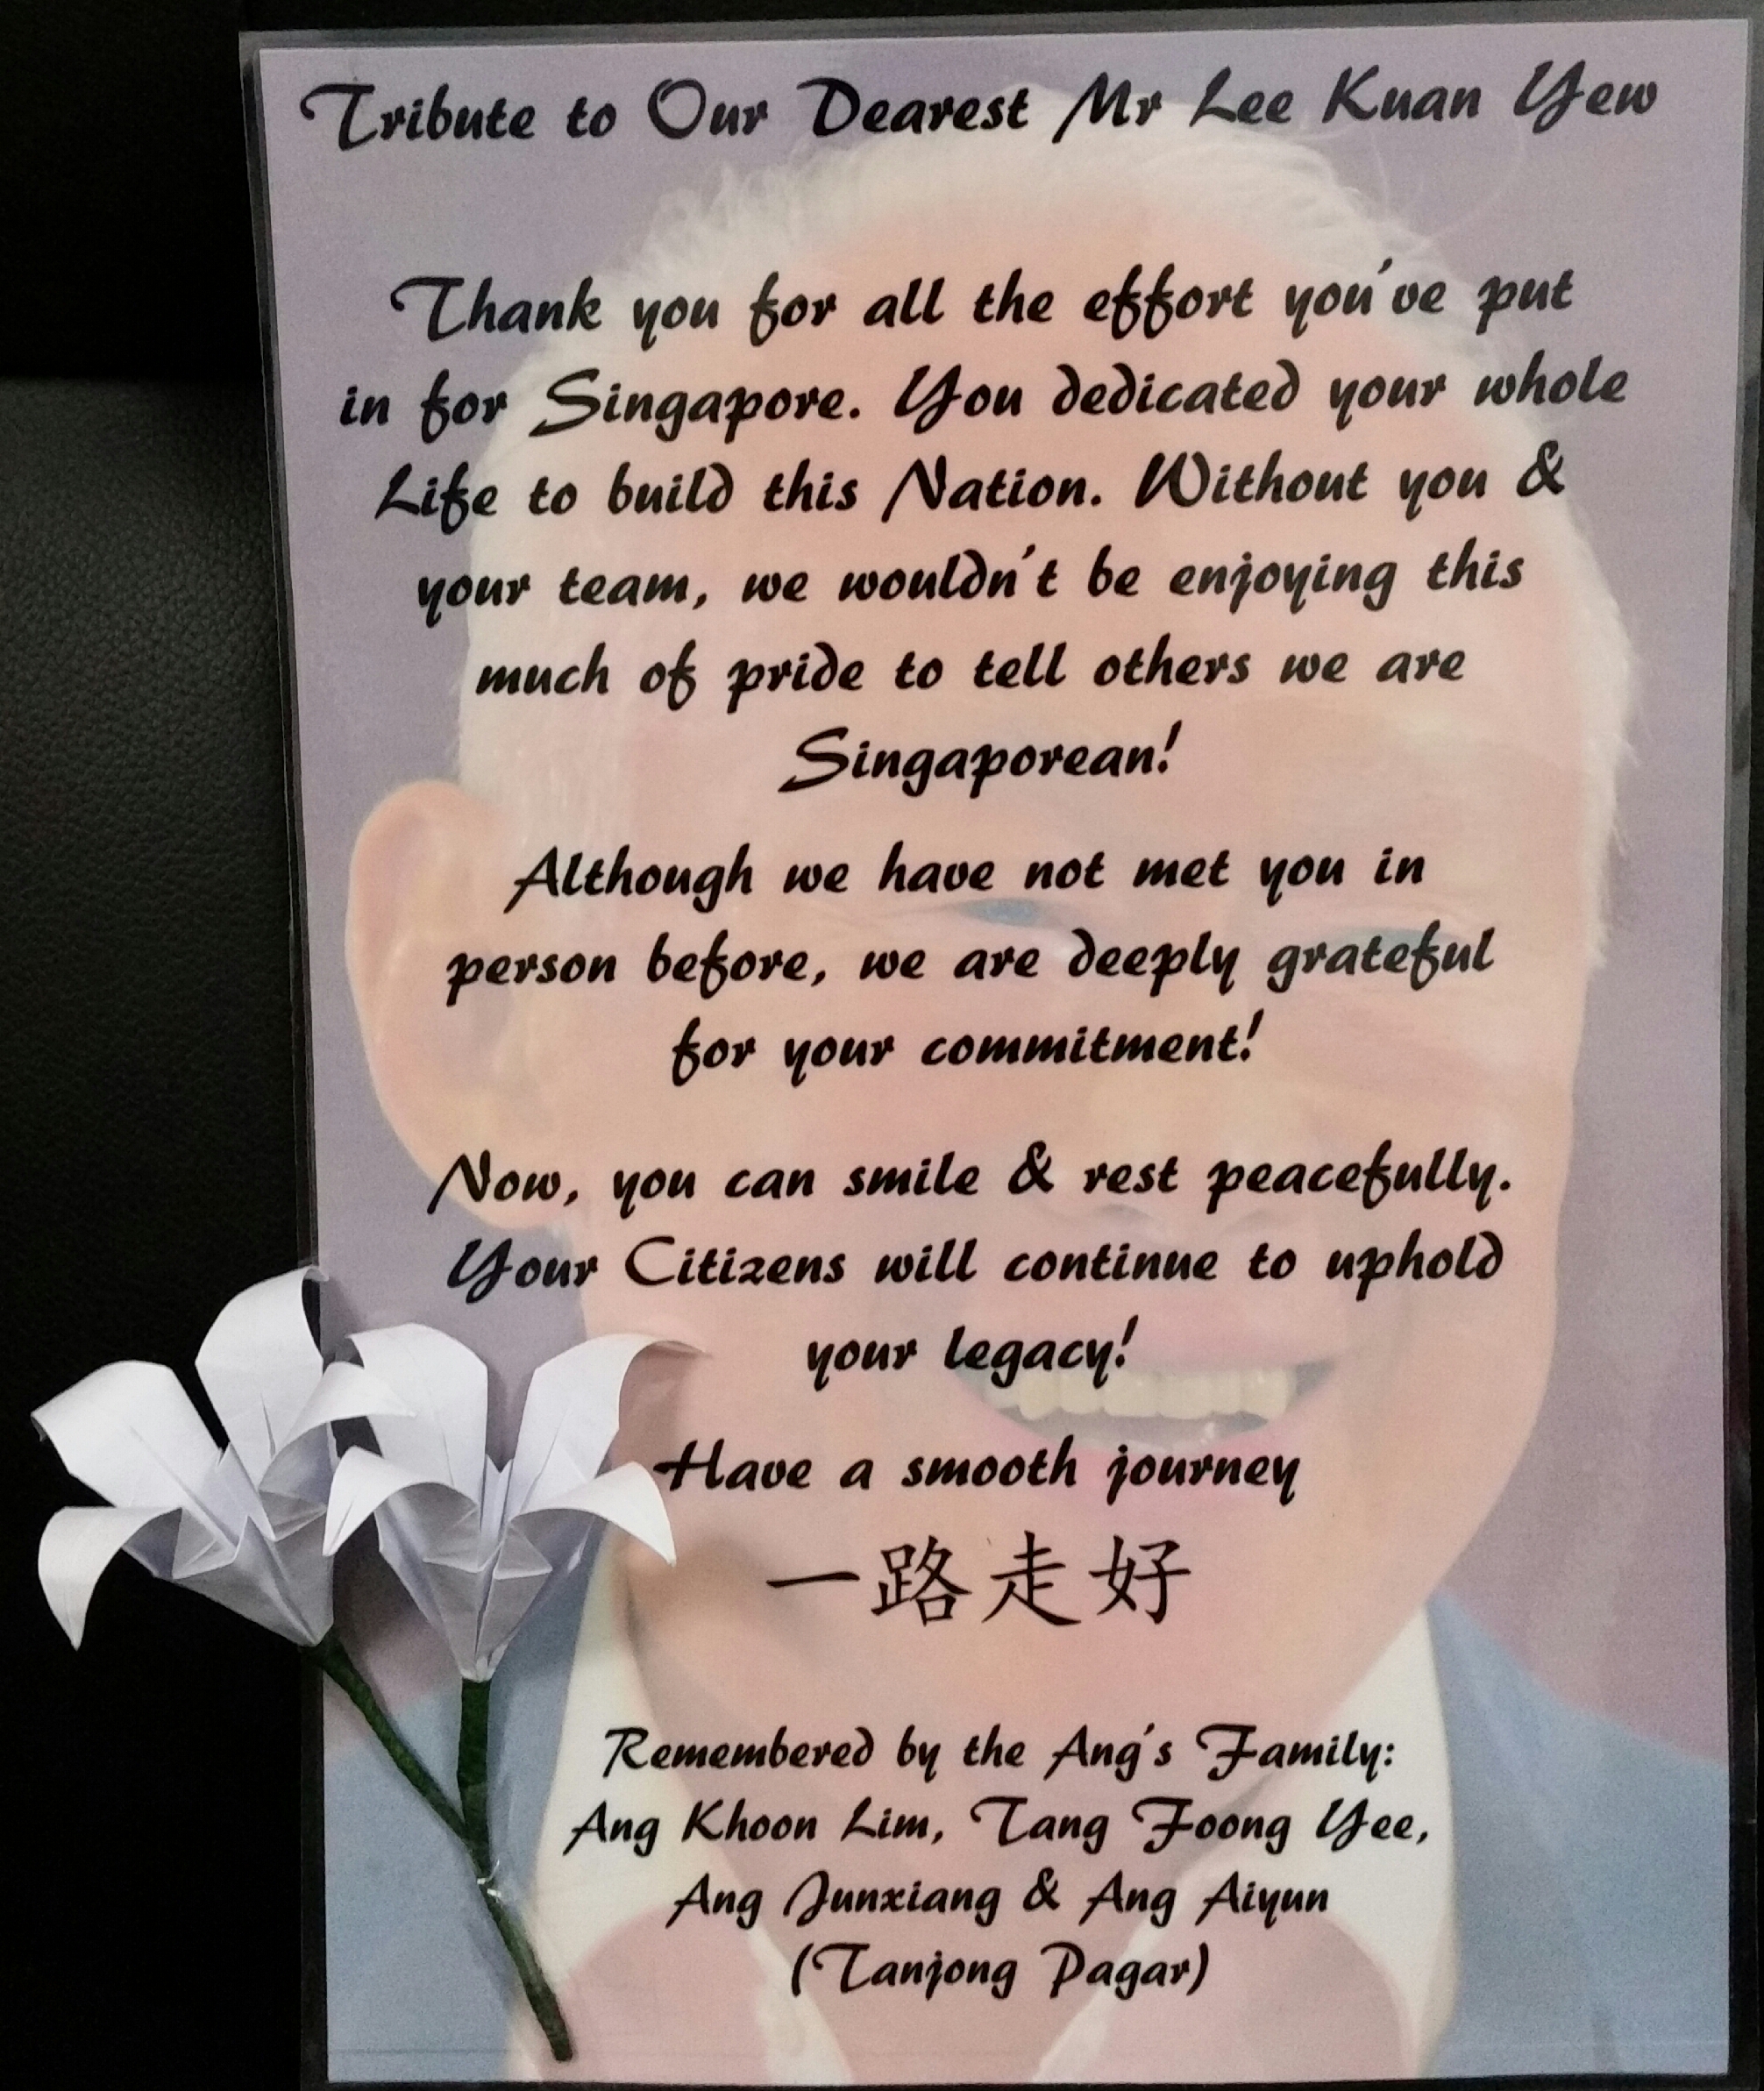 Tribute to Our Dearest Mr Lee Kuan Yew
Thank you for all the effort you've put
in for Singapore. You dedicated your whole
Life to build this Nation. Without you &
your team, we wouldn't be enjoying this
much of pride to tell others we are
Singaporean!
Although we have not met you in
person before, we are deeply grateful
for your commitment!
Now, you can smile & rest peacefully.
Your Citizens will continue to uphold
your legacy!
Have a smooth journey
一路走好
Remembered by the Ang's Family:
Ang Khoon Lim, Tang Foong Yee,
Ang Junxiang & Ang Aiyun
(Tanjong Pagar)